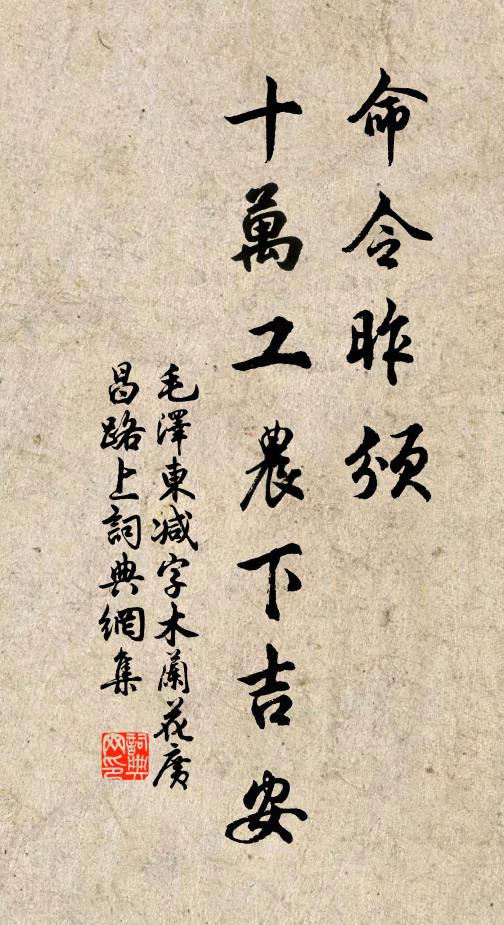 命令昨頒
十萬工農下吉安
毛澤東减字木蘭花廣
昌路上詞典網集
詞典網印